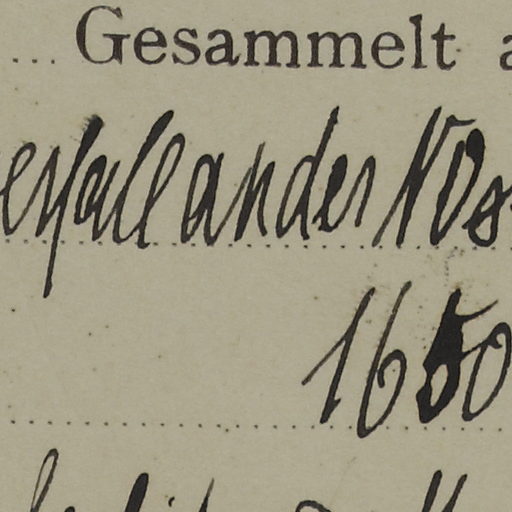 Gesammelt a
erfall an der Nos
1650